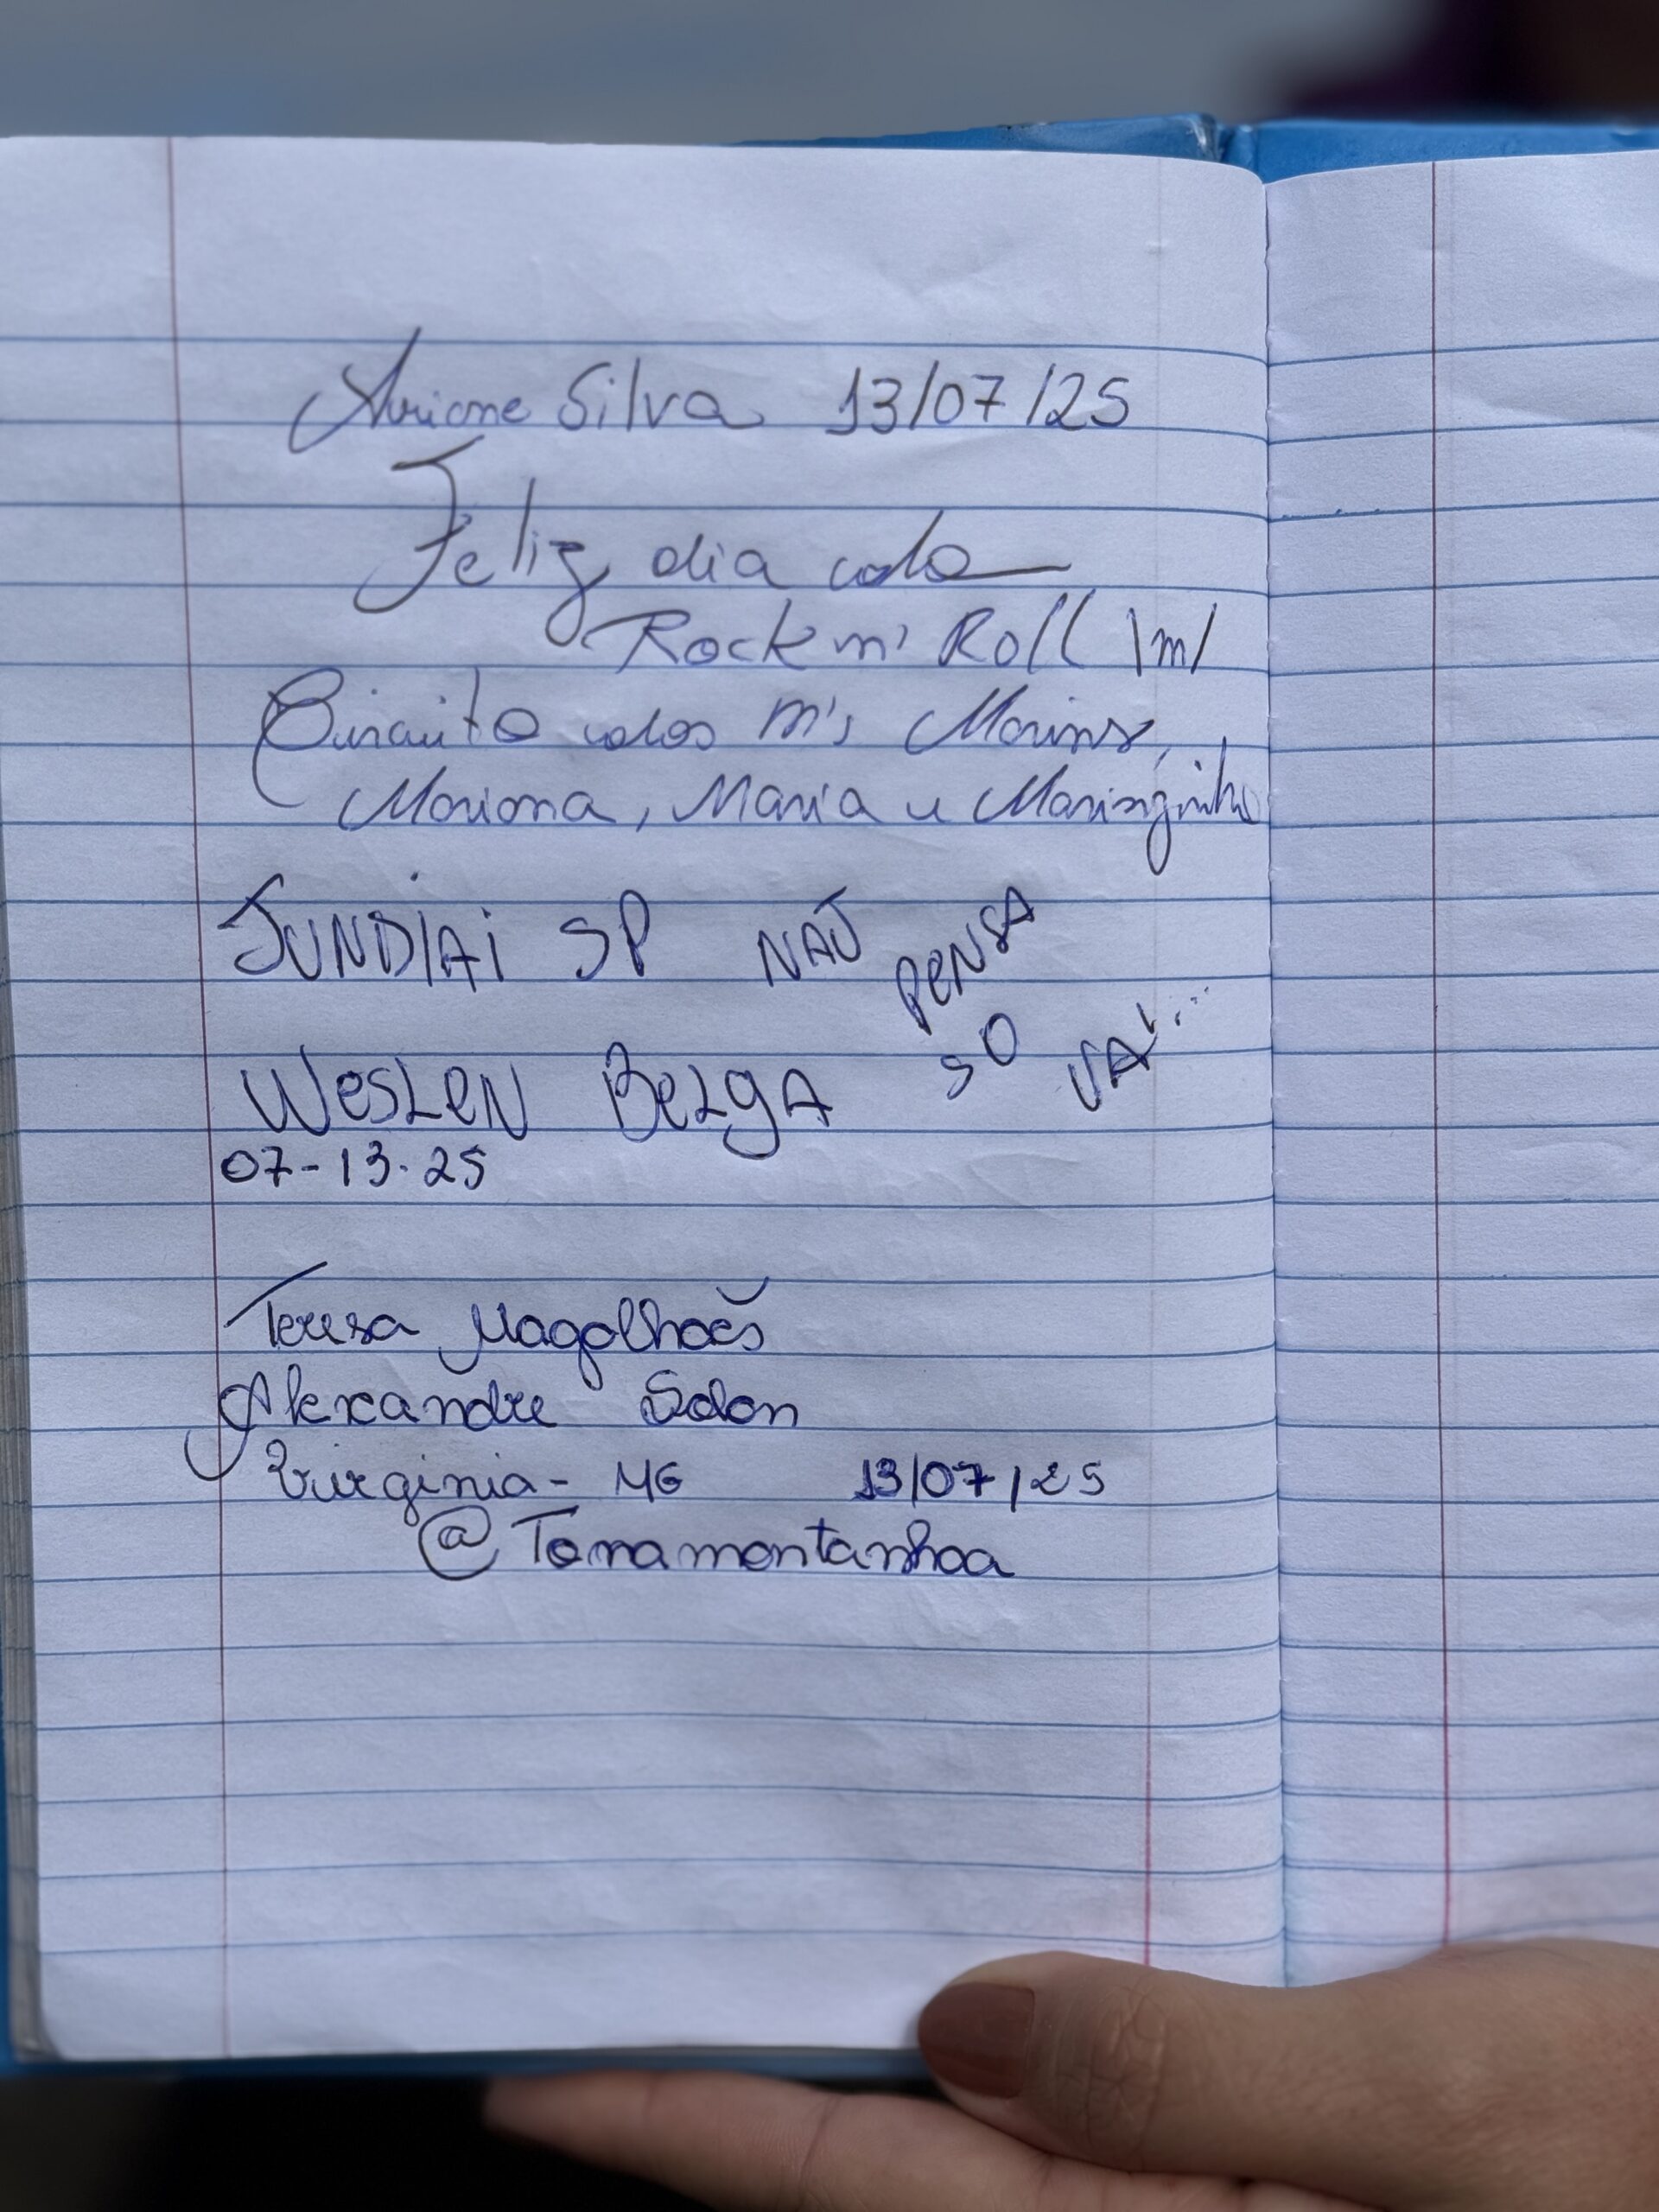 Ariane Silva 13/07/25
Feliz dia do
Rock n' Roll \m/
Circuito dos M's Marins,
Mariana, Maria e Marinzinho
JUNDIAI SP NAO PENSA
SO VAI...
WESLEN BELGA
07-13-25
Teresa Magalhães
Alexandre Solon
Virginia - MG 13/07/25
@Tonamontanhaa